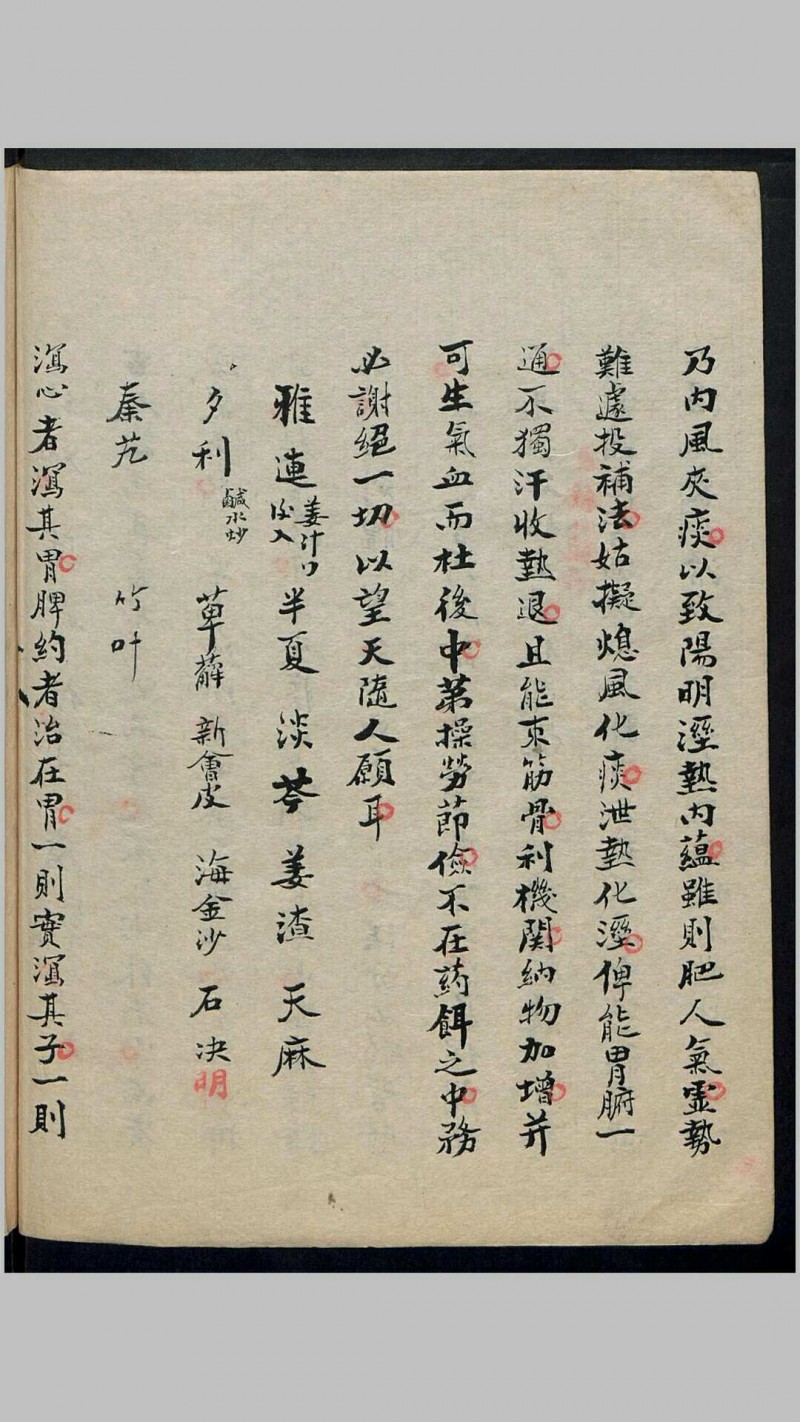 乃内風夾痰以致陽明溼熱内藴雖則肥人氣虛勢
難遽投補法姑擬熄風化痰泄熱化溼俾能胃腑一
通不獨汗收熱退且能束筋骨利機関納物加增并
可生氣血而杜後中第操勞節儉不在葯餌之中務
必謝絕一切以望天隨人願耳
雅連 姜汁 後入 半夏 淡芩 姜渣 天麻
夕利 鹹水炒 萆薢 新會皮 海金沙 石决明
秦艽 竹叶
瀉心者瀉其胃脾約者治在胃一則實瀉其子一則